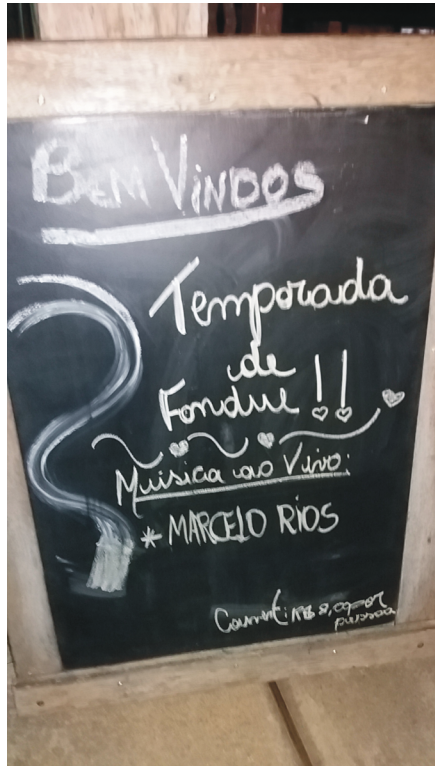 BEM VINDOS
Temporada
de
Fondue!!
Musica ao Vivo:
* MARCELO RIOS
Couvert: R$ 8,00 por
pessoa